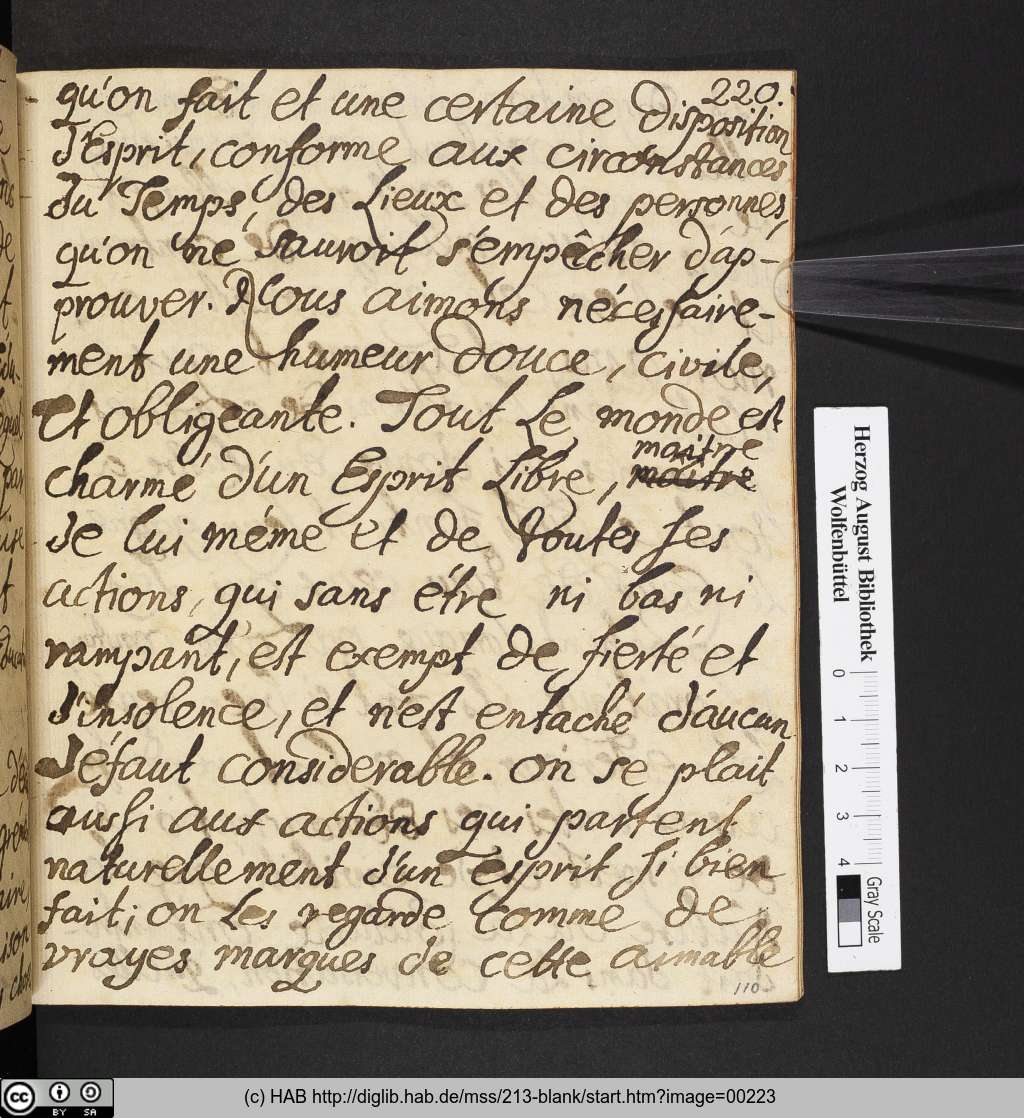 220.
qu'on fait et une certaine disposition
d'Esprit, conforme aux circonstances
du Temps, des Lieux et des personnes,
qu'on ne sauroit s'empêcher d'ap-
prouver. Nous aimons nécessaire-
ment une humeur douce, civile,
Et obligeante. Tout Le monde est
charmé d'un Esprit Libre, maitre
maitre
de lui méme et de toutes ses
actions, qui sans étre ni bas ni
rampant, est exempt de fierté et
d'insolence, et n'est entaché d'aucun
défaut considerable. On se plait
aussi aux actions qui partent
naturellement d'un esprit si bien
fait; on Les regarde comme de
vrayes marques de cette aimable
110
Herzog August Bibliothek
Wolfenbüttel
0 1 2 3 4
Gray Scale
cc BY SA
(c) HAB http://diglib.hab.de/mss/213-blank/start.htm?image=00223